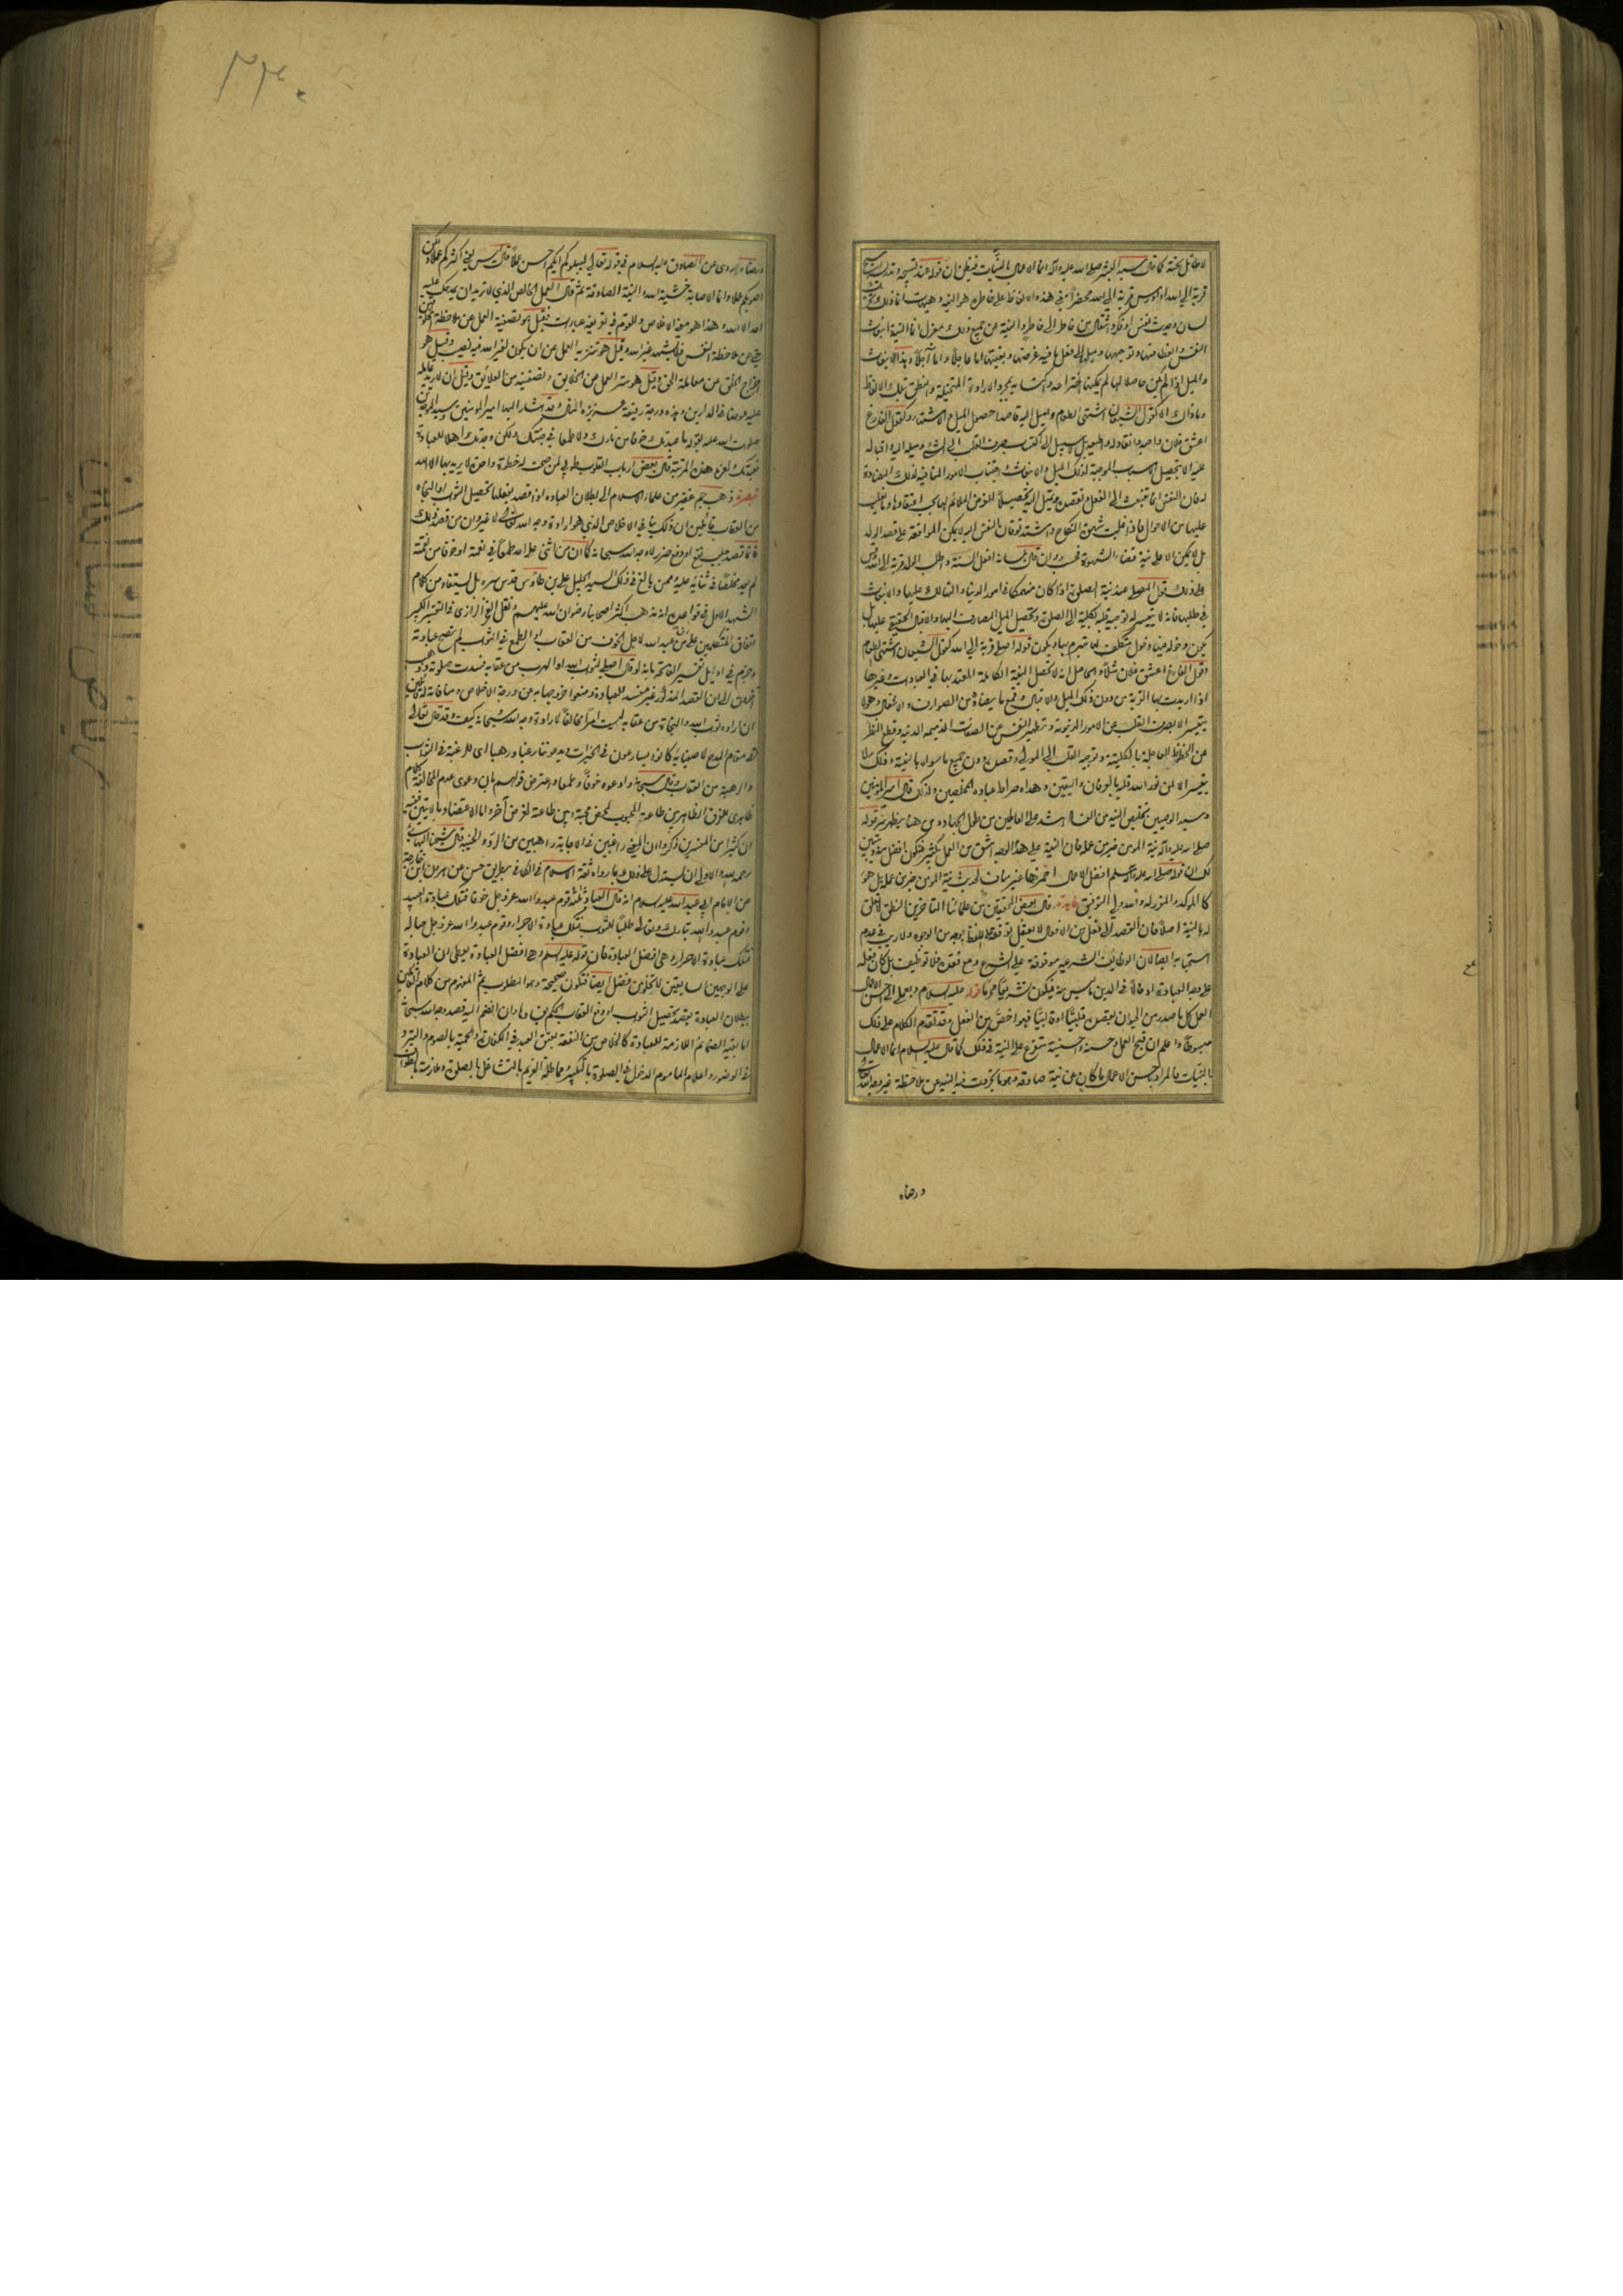 لا طائل تحته كما قال سيد البشر صلى الله عليه وآله انما الاعمال بالنيات فيظن ان قوله عند تسبيحه وتدريسه اسبح
قربة الى الله او ادرس قربة الى الله محضرا معنى هذه الالفاظ على خاطره هو النية وهيهات انما ذلك تحريك
لسان وحديث نفس او فكر وانتقال من خاطر الى خاطر والنية عن جميع ذلك بمعزل انما النية انبعاث
النفس وانعطافها وتوجهها وميلها الى فعل ما فيه غرضها وبغيتها اما عاجلا واما آجلا وهذا الانبعاث
والميل اذا لم يكن حاصلا لها لم يمكنها اختراعه واكتسابه بمجرد الارادة المتخيلة والنطق بتلك الالفاظ
وما ذلك الا كقول الشبعان اشتهي الطعام واميل اليه قاصدا حصول الميل والاشتهاء وكقول الفارغ
اعشق فلان واحبه وانقاد له واطيعه بل لا سبيل الى اكتساب صرف القلب الى الشيء وميله اليه واقباله
عليه الا بتحصيل الاسباب الموجبة لذلك الميل والانبعاث واجتناب الامور المنافية لذلك المضادة
له فان النفس انما تنبعث الى الفعل وتقصده وتميل اليه تحصيلا للغرض الملائم لها بحسب اعتقادها وما يغلب
عليها من الاحوال فاذا غلبت شهوة النكاح واشتد توقان النفس اليه لا يمكن المواقعة على قصد الولد
بل لا يمكن الا على نية قضاء الشهوة فحسب وان قال بلسانه افعل السنة واطلب الولد قربة الى الله وقس
على ذلك قول المصلي عند نية الصلوة اذا كان منهمكا في امور الدنيا والتهالك عليها والانبعاث
في طلبها فانه لا يتيسر له توجيه قلبه بكليته الى الصلوة وتحصيل الميل الصادق اليها والاقبال الحقيقي عليها بل
يكون دخوله فيها دخول متكلف لها متبرم بها ويكون قوله اصلي قربة الى الله كقول الشبعان اشتهي الطعام
وقول الفارغ اعشق فلان مثلا والحاصل انه لا تحصل النية الكاملة المعتد بها في العبادات وغيرها
اذا اريدت بها القربة من دون ذلك الميل والاقبال وقمع ما يضاده من الصوارف والاشغال وهو لا
يتيسر الا بصرف القلب عن الامور الدنيوية وتطهير النفس عن الصفات الذميمة الدنية وقطع النظر
عن الحظوظ العاجلة بالكلية وتوجيه القلب الى المولى وقصده دون جميع ما سواه بالنية وذلك لا
يتيسر الا لمن نور الله قلبه بالعرفان واليقين وهداه صراط عباده المخلصين ولذلك قال امير المؤمنين
وسيد الوصيين تخليص النية من الفساد اشد على العاملين من طول الجهاد ومن هنا يظهر سر قوله
صلى الله عليه وآله نية المؤمن خير من عمله فان النية على هذا الوجه اشق من العمل بكثير فتكون افضل منه ويتبين
لك ان قوله صلى الله عليه وآله وسلم افضل الاعمال احمزها غير مناف لحديث نية المؤمن خير من عمله بل هو
كالمؤكد والمقرر له والله ولي التوفيق فايدة قال بعض المحققين من علمائنا المتاخرين النطق لا تعلق
له بالنية اصلا فان القصد الى فعل من الافعال لا يعقل توقفه على اللفظ بوجه من الوجوه ولا ريب في عدم
استحبابه ايضا لان الوظايف الشرعية موقوفة على الشرع ومع فقده فلا توظيف بل كان فعله
على وجه العبادة ادخالا في الدين ما ليس منه فيكون تشريعا محرما قوله عليه السلام وبعملي الى احسن الاعمال
العمل كل ما صدر من الحيوان بقصده قلبيا او قالبيا فهو اخص من الفعل وقد تقدم الكلام على ذلك
مبسوطا واعلم ان قبح العمل وحسنه واحسنيته متفرع على النية في ذلك كما قال عليه السلام انما الاعمال
بالنيات فالمراد باحسن الاعمال ما كان عن نية صادقة وهو ما تجردت فيه النية عن ملاحظة غير وجه الله تعالى
ورضاه
ورضاه روى عن الصادق عليه السلام في قوله تعالى ليبلوكم ايكم احسن عملا قال ليس يعني اكثركم عملا ولكن
اصوبكم عملا وانما الاصابة خشية الله والنية الصادقة ثم قال العمل الخالص الذي لا تريد ان يمدحك عليه
احد الا الله وهذا هو معنى الاخلاص وللقوم في تعريفه عبارات فقيل هو تصفية العمل عن ملاحظة المخلوقين
حتى عن ملاحظة النفس فلا يشهد غير الله وقيل هو تنزيه العمل عن ان يكون لغير الله فيه نصيب وقيل هو
اخراج الخلق عن معاملة الحق وقيل هو ستر العمل عن الخلايق وتصفيته من العلائق وقيل ان لا يريد عامله
عليه عوضا في الدارين وهذه درجة رفيعة عزيزة المنال وقد اشار اليها امير المؤمنين وسيد الموحدين
صلوات الله عليه بقوله ما عبدتك خوفا من نارك ولا طمعا في جنتك ولكن وجدتك اهلا للعبادة
فعبدتك ولعزة هذه المرتبة قال بعض ارباب القلوب طوبى لمن صحت له خطوة واحدة لا يريد بها الا الله
تبصرة ذهب جم غفير من علماء الاسلام الى بطلان العبادة اذا قصد بفعلها تحصيل الثواب او النجاة
من العقاب قائلين ان ذلك ينافي الاخلاص الذي هو ارادة وجه الله تعالى لا غير وان من قصد ذلك
فانما قصد جلب نفع او دفع ضرر لا وجه الله سبحانه كما ان من اثنى على احد طمعا في نعمة او خوفا من نقمته
لم يعد مخلصا في ثنائه عليه وممن بالغ في ذلك السيد الجليل علي بن طاوس قدس سره بل يستفاد من كلام
الشهيد الاول في قواعده انه مذهب اكثر اصحابنا رضوان الله عليهم ونقل الفخر الرازي في التفسير الكبير
اتفاق المتكلمين على ان من عبد الله لاجل الخوف من العقاب او الطمع في الثواب لم تصح عبادته
وجزم في اوايل تفسير الفاتحة بانه لو قال اصلي لثواب الله او الهرب من عقابه فسدت صلوته وذهب
آخرون الى ان القصد المذكور غير مفسد للعبادة ومنعوا خروجها به عن درجة الاخلاص ومنافاته له قائلين
ان ارادة ثواب الله والنجاة من عقابه ليست امرا مخالفا لارادة وجه الله سبحانه كيف وقد قال تعالى
في مقام المدح لاصفيائه كانوا يسارعون في الخيرات ويدعوننا رغبا ورهبا اي للرغبة في الثواب
والرهبة من العقاب وقال سبحانه وادعوه خوفا وطمعا واعترض قولهم بان دعوى عدم المخالفة كلام
ظاهري للفرق الظاهر بين طاعة المحبوب لمحض محبته وبين طاعته لغرض آخر واما الاعتضاد بالايتين ففيه
ان كثيرا من المفسرين ذكروا ان المعنى راغبين في الاجابة راهبين من الرد والخيبة قال شيخنا البهائي
رحمه الله والاولى ان يستدل على ذلك بما رواه ثقة الاسلام في الكافي بطريق حسن عن هرون بن خارجة
عن الامام ابي عبد الله عليه السلام انه قال العباد ثلثة قوم عبدوا الله عز وجل خوفا فتلك عبادة العبيد
وقوم عبدوا الله تبارك وتعالى طلبا للثواب فتلك عبادة الاجراء وقوم عبدوا الله عز وجل حبا له
فتلك عبادة الاحرار وهي افضل العبادة فان قوله عليه السلام وهي افضل العبادة يعطي ان العبادة
على الوجهين السابقين لا تخلو من فضل ايضا فتكون صحيحة وهو المطلوب ثم المفهوم من كلام القائلين
ببطلان العبادة بقصد تحصيل الثواب او دفع العقاب الحكم بفسادها وان انضم اليه قصد وجه الله سبحانه
اما بقية الضمائم اللازمة للعبادة كالخلاص من النفقة بعتق العبد في الكفارة والحمية بالصوم والتبرد
في الوضوء واعلام المأموم الدخول في الصلوة بالتكبير ومماطلة الغريم بالتشاغل بالصلوة وملازمته بالطواف